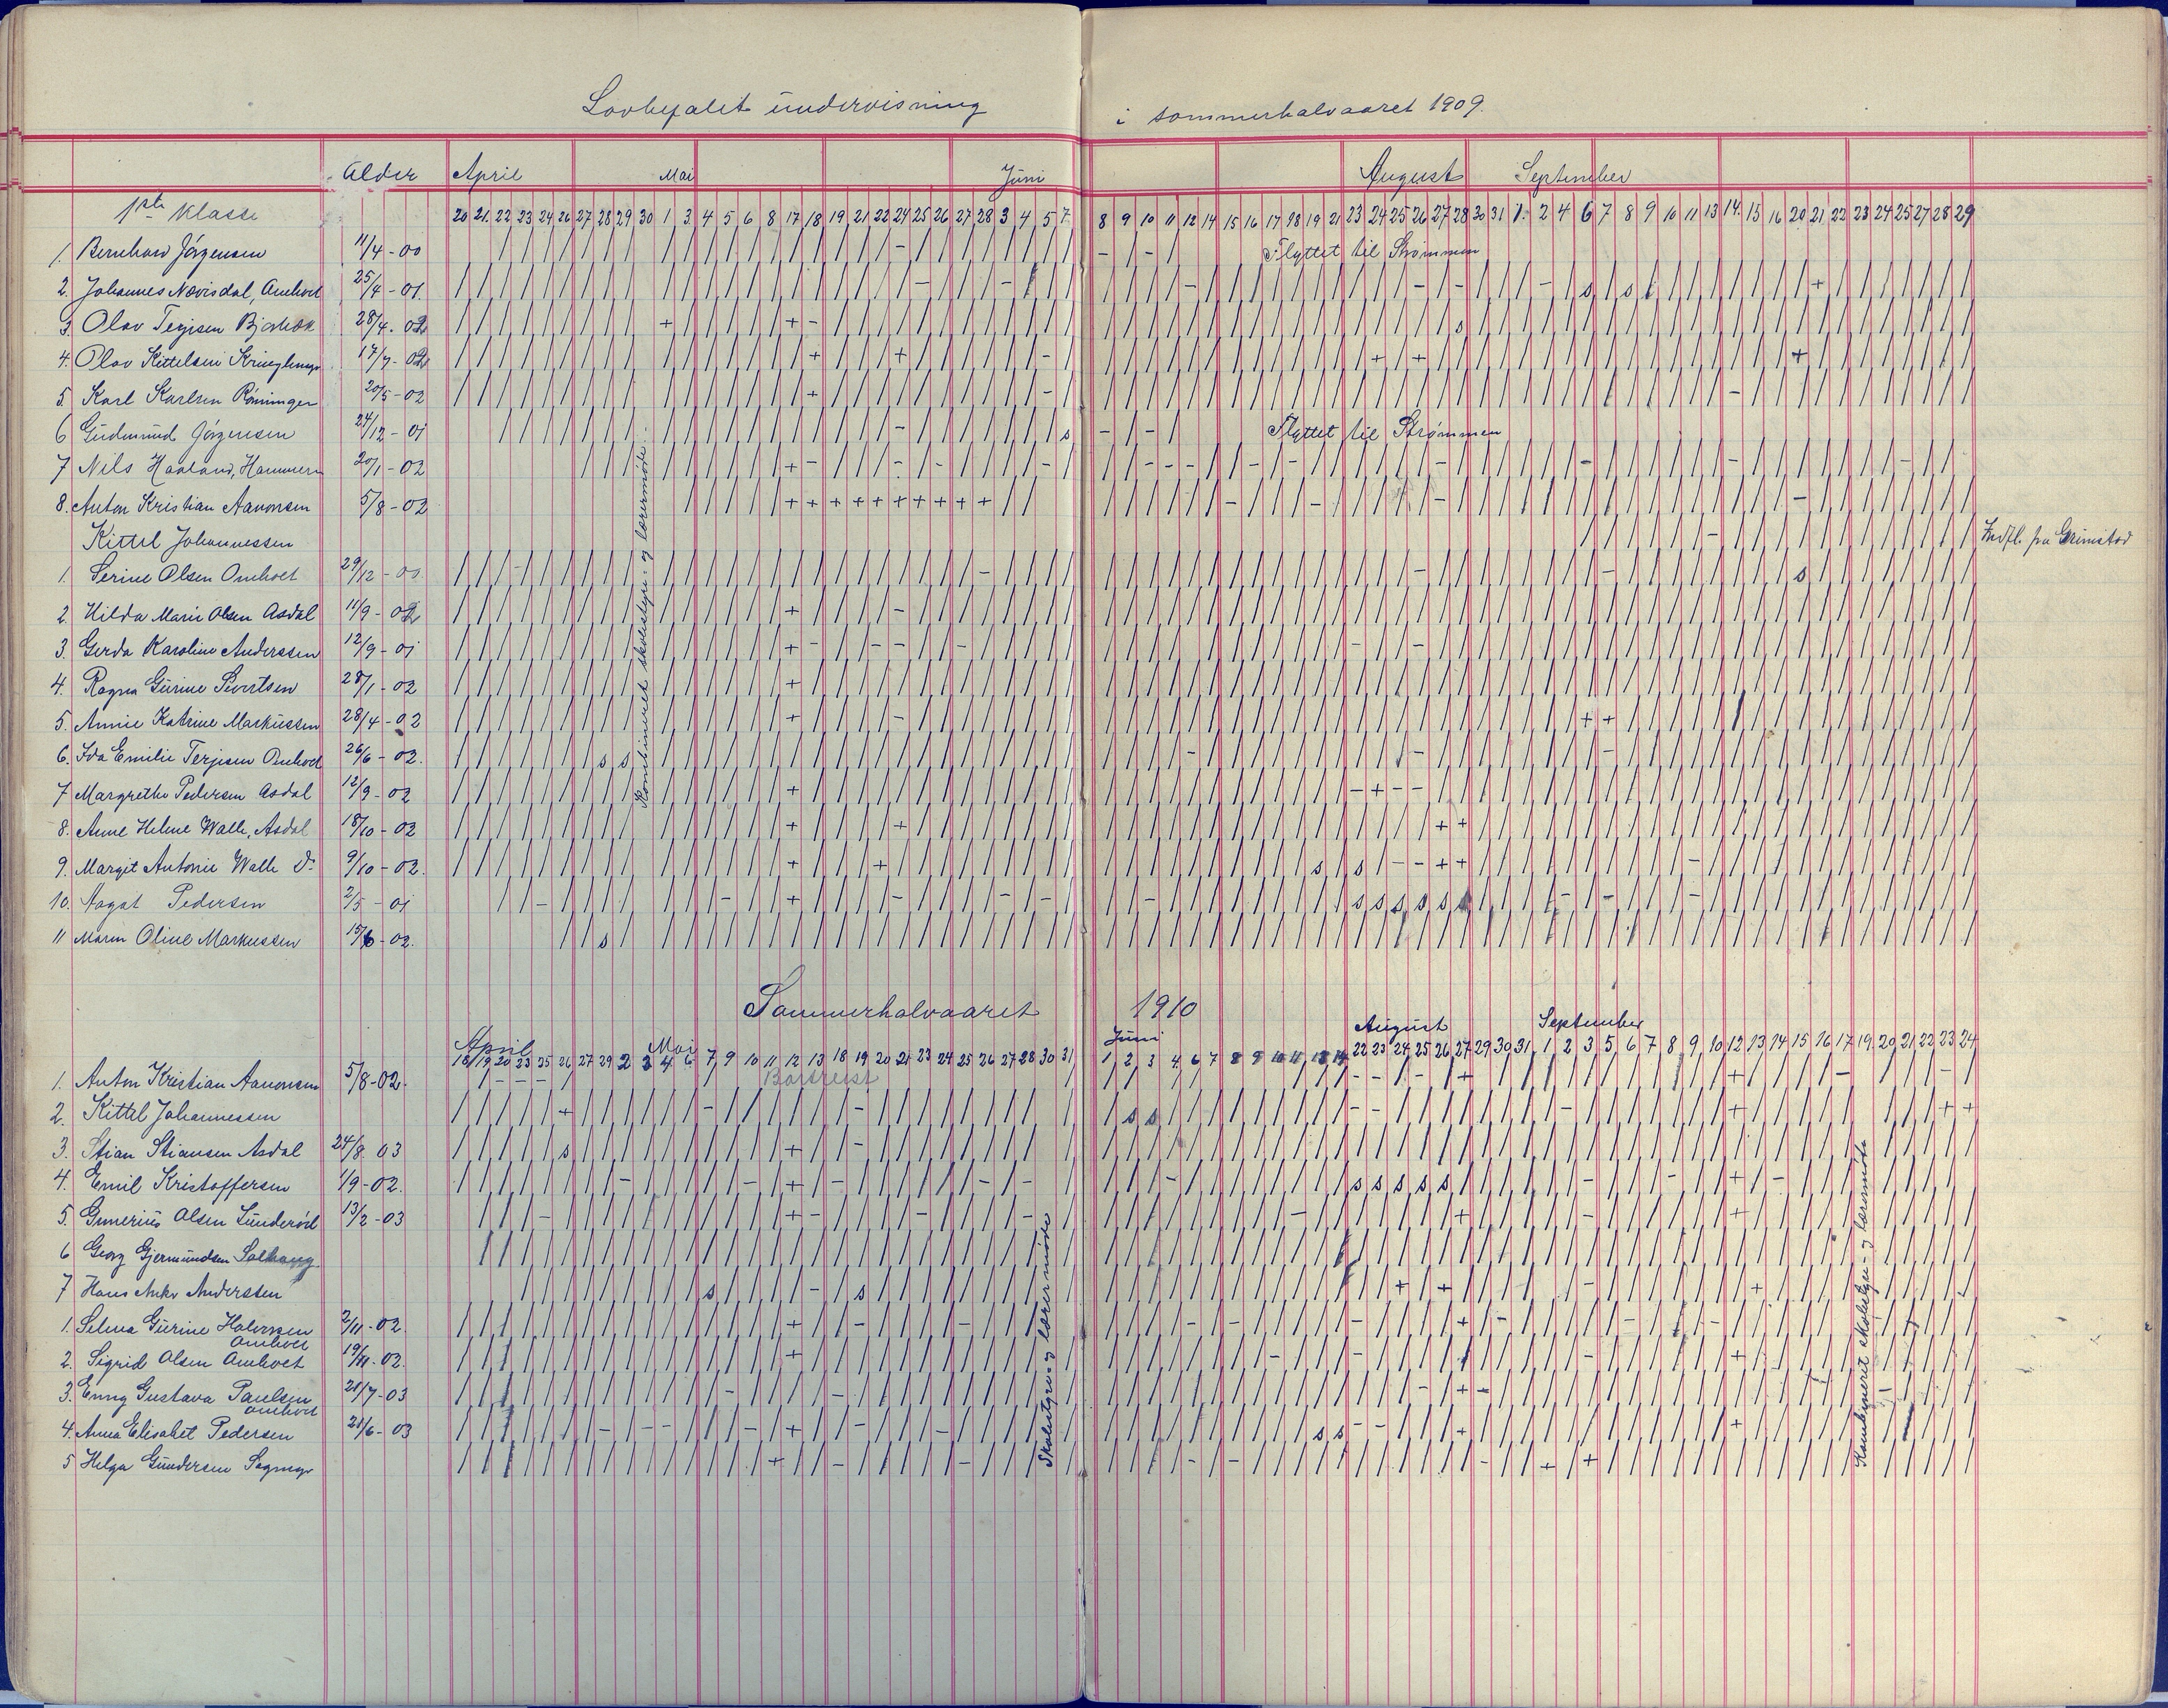 Lovbefalet undervisning i sommerhalvaaret 1909.
Alder April Mai Juni August September
1ste Klasse 20 21 22 23 24 26 27 28 29 30 1 3 4 5 6 8 17 18 19 21 22 24 25 26 27 28 3 4 5 7 8 9 10 11 12 14 15 16 17 18 19 21 23 24 25 26 27 28 30 31 1 2 4 6 7 8 9 10 11 13 14 15 16 20 21 22 23 24 25 27 28 29
1. Bernhard Jørgensen 11/4 - 00 Flyttet til Strømmen
2. Johannes Nævisdal, Omholt 25/4 - 01.
3. Olav Terjesen 28/4. 02
4. Olav Kittelsen 17/7 - 02
5. Karl Karlsen Rønningen 20/5 - 02
6 Gudmund Jørgensen 24/12 - 01 Flyttet til Strømmen
7 Nils Haaland, Hammeren 20/1 - 02
8. Anton Kristian Aanonsen 5/8 - 02
Kittel Johannessen Indfl. fra Grimstad
1. Serine Olsen Omholt 29/12 - 00
2. Hilda Marie Olsen Asdal 11/9 - 02
3. Gerda Karoline Anderssen 12/9 - 01
4. Ragna Gurine Sivertsen 28/1 - 02
5. Annie Katrine Markussen 28/4 - 02
6. Ida Emilie Terjesen Omholt 26/6 - 02.
7 Margrethe Pedersen Asdal 12/9 - 02
8. Anne Helene Walle, Asdal 18/10 - 02
9. Margit Antonie Walle Do 9/10 - 02.
10. Aagot Pedersen 2/5 - 01
11 Maren Oline Markussen 15/6 - 02.
Kombineret skolestyre og lærermøte
Sommerhalvaaret 1910
April Mai Juni August September
18 19 20 23 25 26 27 29 2 3 4 6 7 9 10 11 12 13 18 19 20 21 23 24 25 26 27 28 30 31 1 2 3 4 6 7 8 9 10 11 13 14 22 23 24 25 26 27 29 30 31 1 2 3 5 6 7 8 9 10 12 13 14 15 16 17 19 20 21 22 23 24
1. Anton Kristian Aanonsen 5/8 - 02. Bortreist
2. Kittel Johannessen
3. Stian Stiansen Asdal 24/8 03
4. Emil Kristoffersen 1/9 - 02.
5. Gunerius Olsen 13/2 - 03
6 Georg Gjermundsen Solhaug
7 Hans Anker Anderssen
1. Selma Gurine Halvorsen Omholt 2/11 - 02.
2. Sigrid Olsen Omholt 19/11 - 02.
3. Enny Gustava Paulsen Omholt 21/7 - 03
4. Anna Elisabet Pedersen 21/6 - 03
5 Helga Gundersen
Skolestyre- og lærermøde
Kombineret skolestyre- og lærermøte